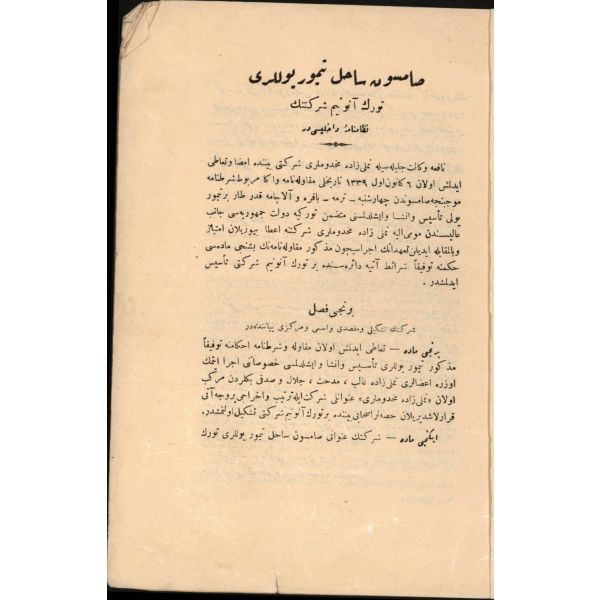 صامسون ساحل تیمور یوللری
تورك آنونیم شرکتنك
نظامنامهٔ داخلیسی در
نافعه وکالت جلیله سیله نملی زاده مخدوملری شرکتی بیننده امضا وتعاطی
ایدلمش اولان ٦ کانون اول ١٣٣٩ تاریخلی مقاوله نامه واکا مربوط شرطنامه
موجبنجه صامسوندن چهارشنبه ـ ترمه ـ بافره و آلاجامه قدر طار بر تیمور
یولی تأسیس وانشا وایشلدلمسنی متضمن تورکیه دولت جمهوریه سی جانب
عالیسندن مومی الیه نملی زاده مخدوملری شرکتنه اعطا بیوریلان امتیاز
وبالمقابله ایدیلن تعهداتك اجراسیچون مذکور مقاوله نامه نك بشنجی ماده سی
حکمنه توفیقاً شرائط آتیه دائره سنده بر تورك آنونیم شرکتی تأسیس
ایدلمشدر .
برنجی فصل
شرکتك تشکیلی ومقصدی واسمی ومرکزی بیاننده در
برنجی ماده — تعاطی ایدلمش اولان مقاوله وشرطنامه احکامنه توفیقاً
مذکور تیمور یوللری تأسیس وانشا وایشلدلمسی خصوصاتنی اجرا ایتمك
اوزره اعضالری نملی زاده غالب ، مدحت ، جلال و صدقی بکلردن مرکب
اولان «نملی زاده مخدوملری» عنوانلی شرکت ایله ترتیب واخراجی بروجه آتی
قرارلاشدیریلان حصه لر اصحابی بیننده بر تورك آنونیم شرکتی تشکیل اولنمشدر.
ایکنجی ماده — شرکتك عنوانی صامسون ساحل تیمور یوللری تورك